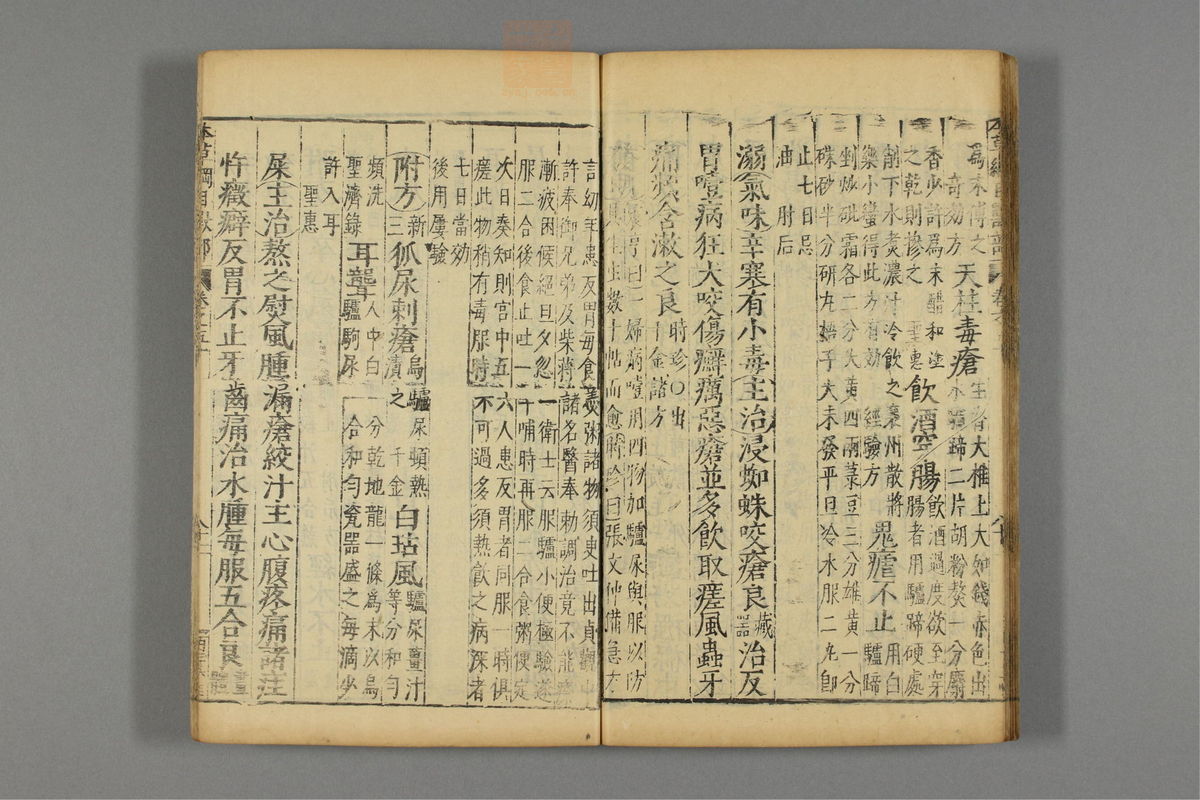 爲末傅之
奇効方
天柱毒瘡
生脊大椎上大如錢赤色出
水驢蹄二片胡粉熬一分麝
香少許爲末醋和塗
之乾則慘之 聖惠
飲酒穿腸
飲酒過度欲至穿
腸者用驢蹄硬處
削下水煮濃汁冷飲之襄州散將
樂小蠻得此方有効 經驗方
鬼瘧不止
用白
驢蹄
剉炒砒霜各二分大黃四兩菉豆三分雄黃一分
硃砂半分研丸梧子大未發平旦冷水服二丸卽
止七日忌
油 肘后
溺氣味辛寒有小毒主治浸蜘蛛咬瘡良藏器治反
胃噎病狂犬咬傷癬癘惡瘡並多飲取瘥風蟲牙
痛頻含漱之良
時珍○出
千金諸方
亨曰一婦病噎用四物加驢尿與服以防
其生蟲數十帖而愈時珍曰張文仲備急方
言幼年患反胃每食羹粥諸物須臾吐出貞觀中
許奉御兄弟及柴蔣諸名醫奉勅調治竟不能療
漸疲困候絕旦夕忽一衛士云服驢小便極驗遂
服二合後食止吐一半哺時再服二合食粥便定
次日奏知則宮中五六人患反胃者同服一時俱
瘥此物稍有毒服時不可過多須熱飲之病深者
七日當効
後用屢驗
附方新三
狐尿刺瘡
烏驢尿頓熱
漬之 千金
白㾦風
驢尿薑汁
等分和勻
頻洗
聖濟錄
耳聾
人中白一分乾地龍一條爲末以烏
驢駒尿一合和勻瓷器盛之每滴少
許入耳
聖惠
屎主治熬之熨風腫漏瘡絞汁主心腹疼痛諸疰
忤癥癖反胃不止牙齒痛治水腫每服五合良
本草綱目獸部 卷之五十